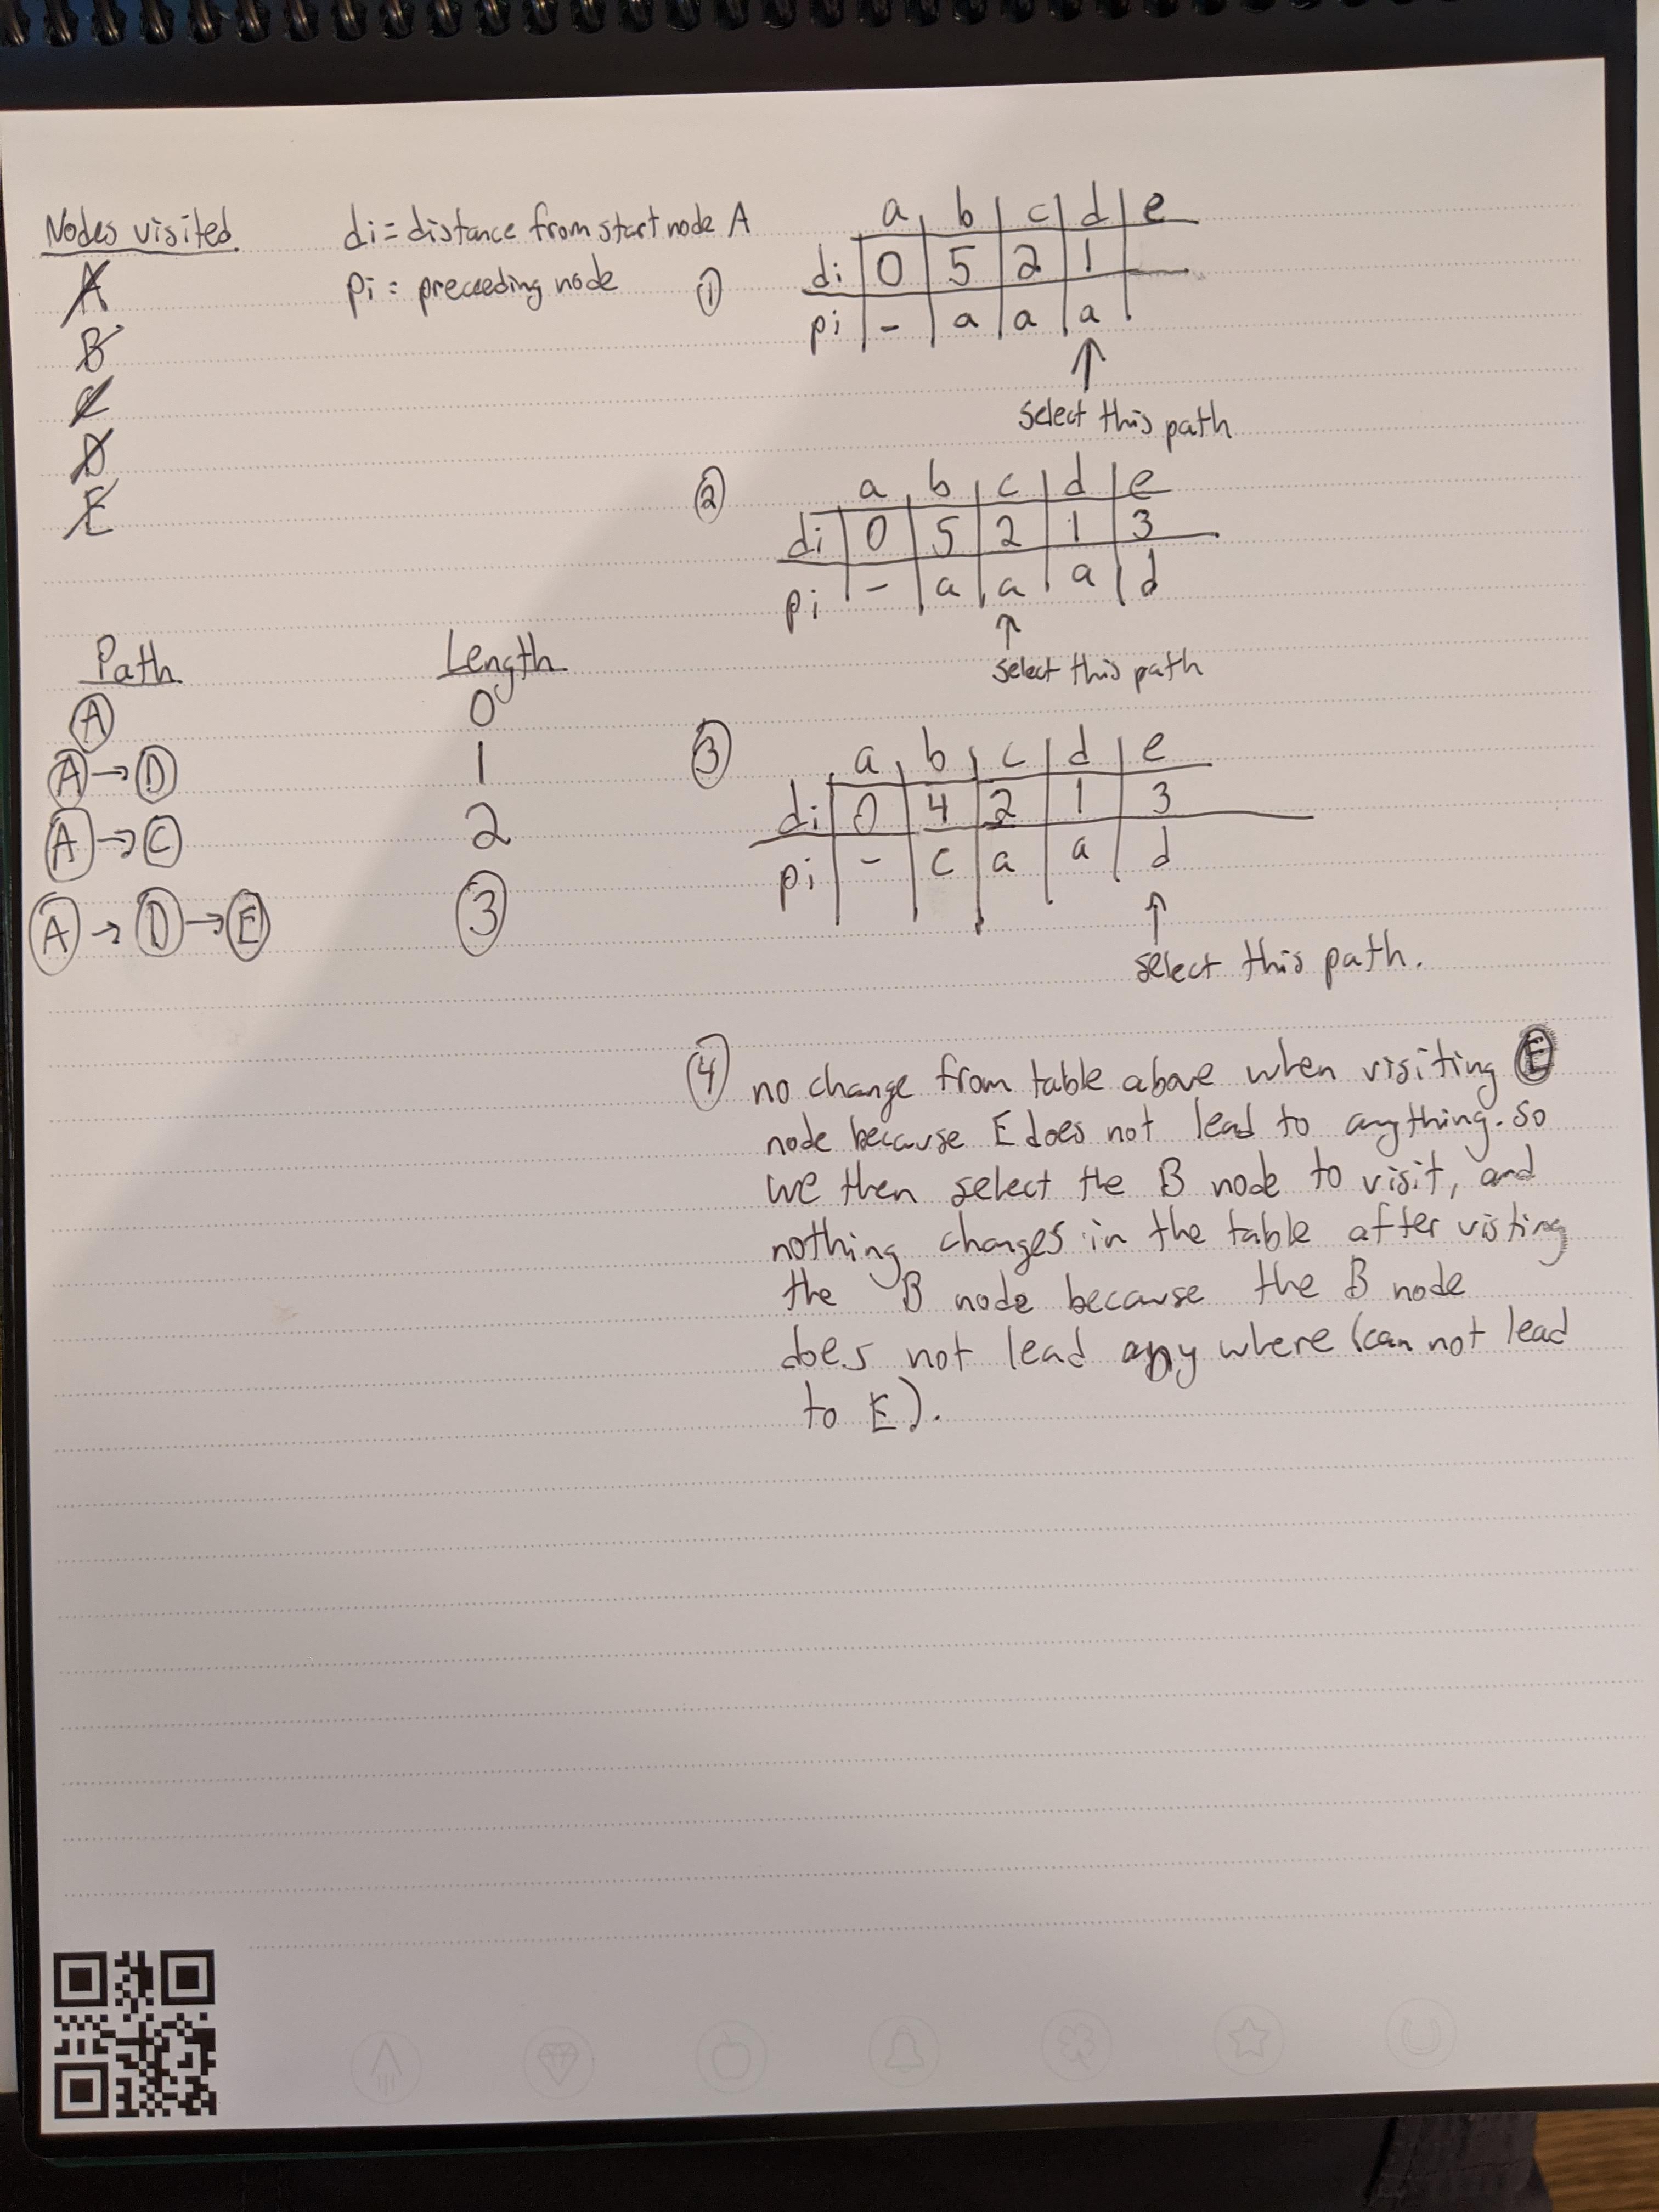 Nodes visited.
A
B
C
D
E
di = distance from start node A
pi = preceeding node
①
a b c d e
di 0 5 2 1
pi - a a a
↑
select this path
②
a b c d e
di 0 5 2 1 3
pi - a a a d
↑
select this path
Path Length
A 0
A → D 1
A → C 2
A → D → E 3
③
a b c d e
di 0 4 2 1 3
pi - c a a d
↑
select this path.
④ no change from table above when visiting E
node because E does not lead to anything. so
we then select the B node to visit, and
nothing changes in the table after visting
the B node because the B node
does not lead any where (can not lead
to E).